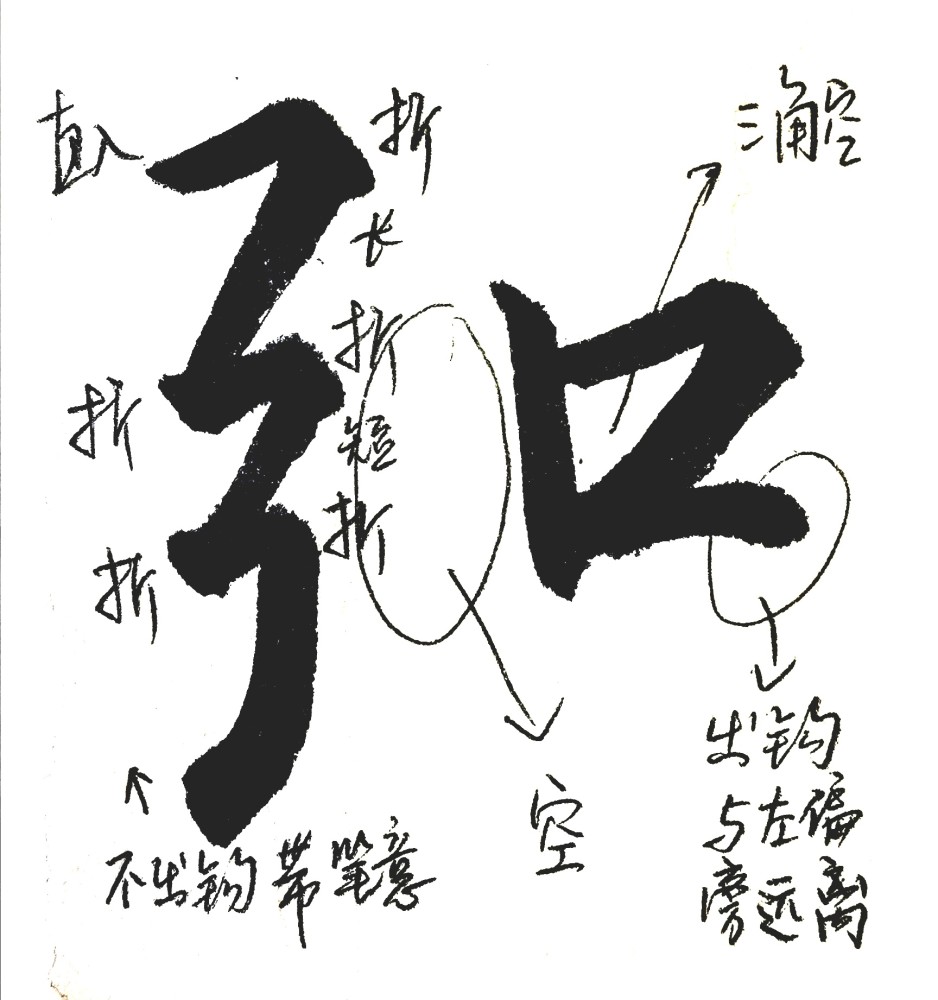 直入
折
三角空
长
折
折
短
折
折
弘
出钩
与左偏
旁远离
空
不出钩带笔意